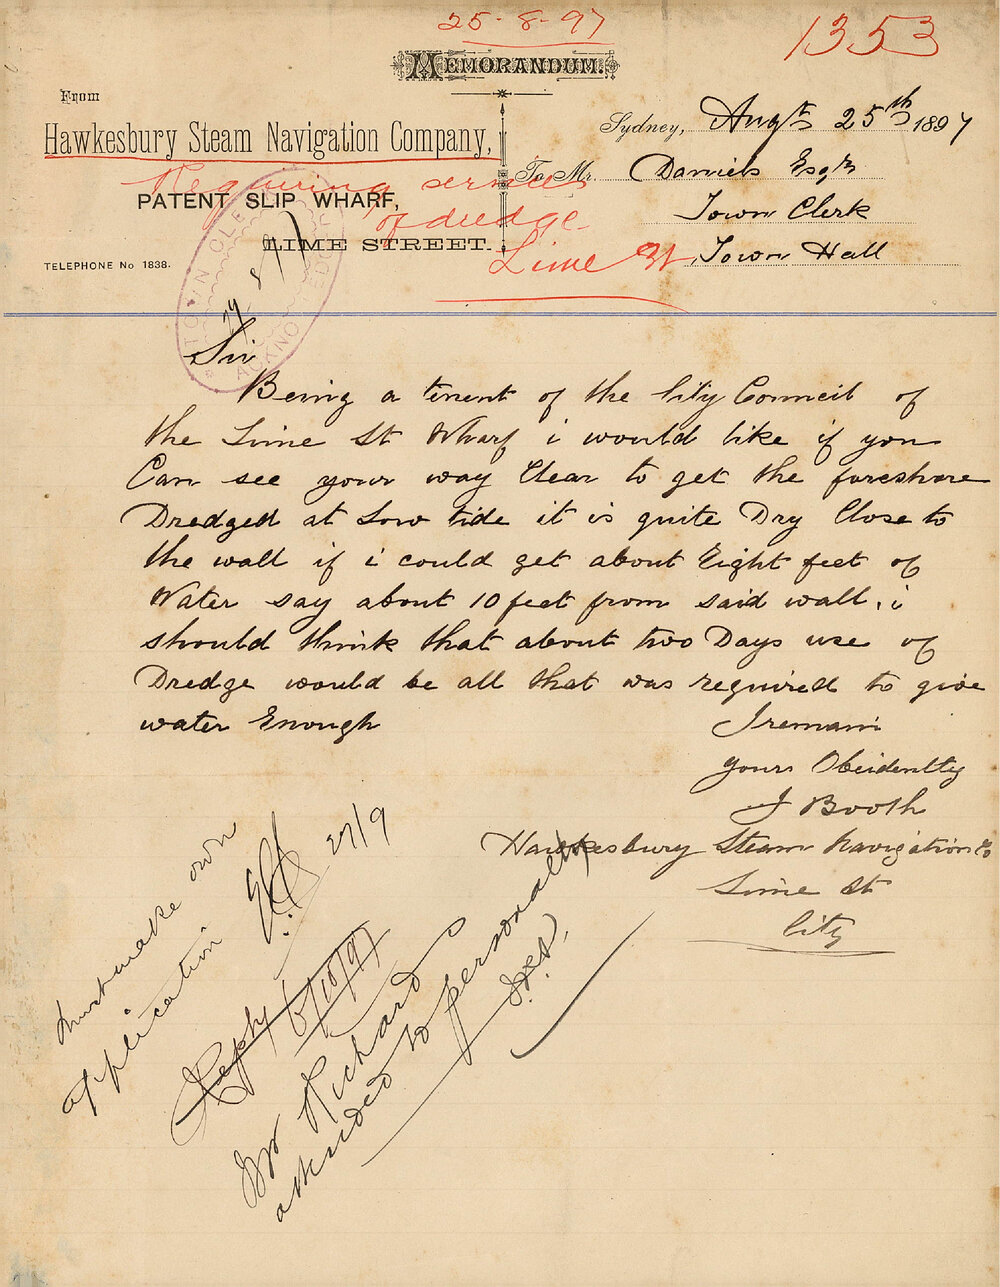 25-8-97
1353
MEMORANDUM.
From
Hawkesbury Steam Navigation Company,
Sydney, Augt 25th 1897
To Mr. Daniels Esqr
Requiring services
PATENT SLIP WHARF,
of dredge.
Town Clerk
LIME STREET.
Lime St
Town Hall
TELEPHONE No 1838.
TOWN CLERK
ACKNOWLEDGED
Sir
Being a tenent of the City Council of
the Lime St Wharf i would like if you
Can see your way Clear to get the foreshore
Dredged at Low tide it is quite Dry Close to
the wall if i could get about Eight feet of
Water say about 10 feet from said wall, i
should think that about two Days use of
Dredge would be all that was required to give
water Enough
I remain
yours Obeidently
J Booth
Hawkesbury Steam Navigation Co
Lime St
City
Must make own
application
27/9
Reply 6/10/97
Mr Richards
attended to personally